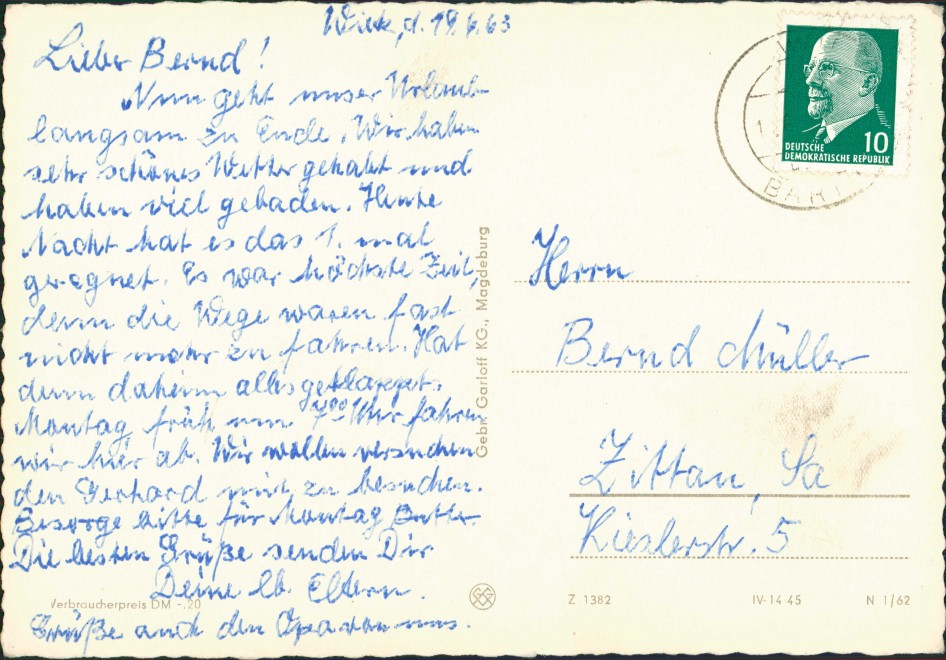 Wiek, d. 19.6.63
Lieber Bernd!
Nun geht unser Urlaub
langsam zu Ende. Wir haben
sehr schönes Wetter gehabt und
haben viel gebaden. Heute
Nacht hat es das 1. mal
geregnet. Es war höchste Zeit,
denn die Wege waren fast
nicht mehr zu fahren. Hat
denn daheim alles geklappt.
Montag früh um 7⁰⁰ Uhr fahren
wir hier ab. Wir wollen versuchen
den Gerhard mit zu besuchen.
Besorge bitte für Montag Butter.
Die besten Grüße senden Dir
Deine lb. Eltern.
Grüße auch den Opa von uns.
Verbraucherpreis DM -.20
Gebr. Garloff KG., Magdeburg
DEUTSCHE
DEMOKRATISCHE REPUBLIK
10
BART
Herrn
Bernd Müller
Zittau, Sa
Kieslerstr. 5
Z 1382 IV-14 45 N 1/62